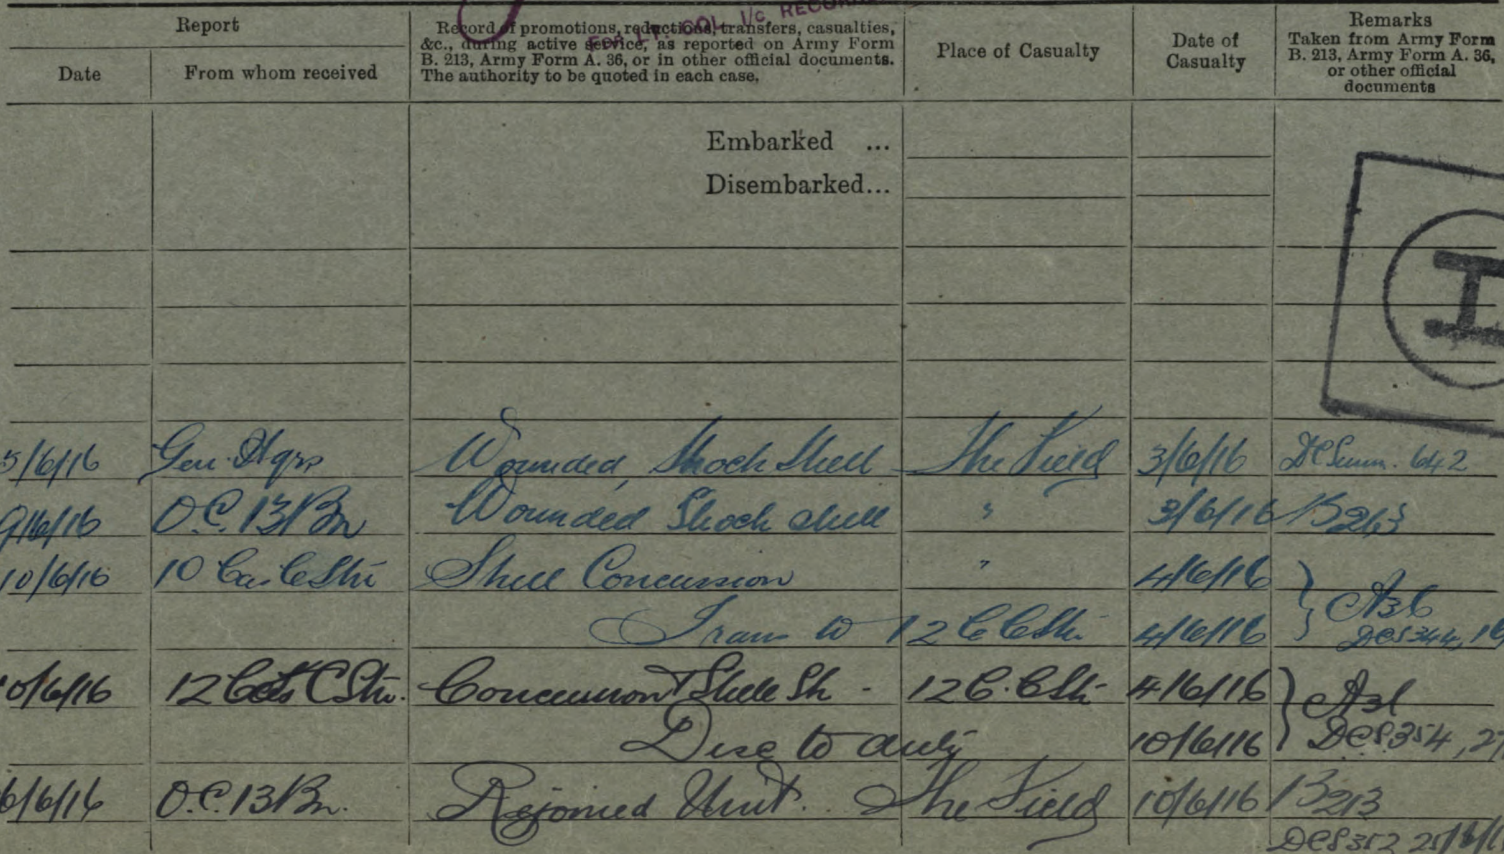 Report
Date
From whom received
Record of promotions, reductions, transfers, casualties,
&c., during active service, as reported on Army Form
B. 213, Army Form A. 36, or in other official documents.
The authority to be quoted in each case.
FOR LT. COL. I/c RECORDS
Place of Casualty
Date of
Casualty
Remarks
Taken from Army Form
B. 213, Army Form A. 36,
or other official
documents
Embarked ...
Disembarked...
I
5/6/16 Gen. Hqrs Wounded, Shock Shell The Field 3/6/16 642
9/6/16 O.C. 13 Bn Wounded Shock shell " 3/6/16 B213
10/6/16 10 Ca. C Stn Shell Concussion " 4/6/16
Trans to 12 C C Stn 4/6/16 A36
DCS344,
0/6/16 12 Cas C Stn. Concussion Shell Sh - 12 C. C Stn 4/6/16 A36
Disc to duty 10/6/16 DCS354,
6/6/16 O.C. 13 Bn. Rejoined Unit. The Field 10/6/16 B213
DCS352